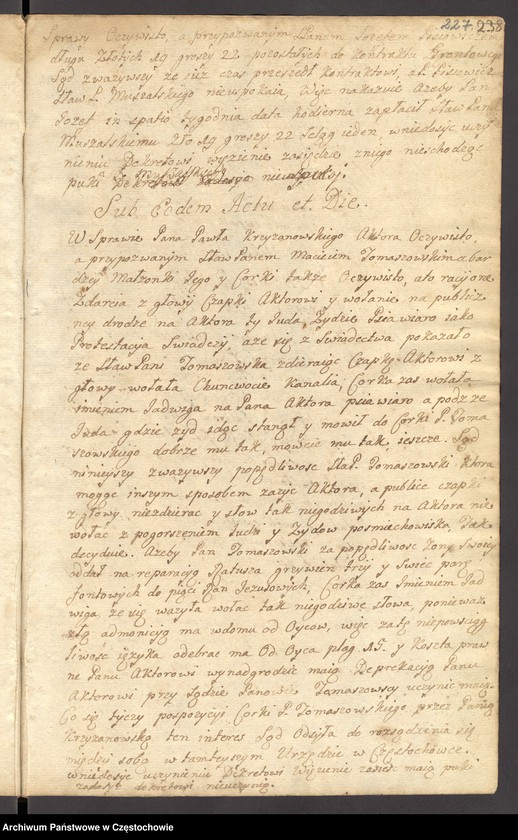 227. 238
Sprawy Oczywisto, a przypozwanym Panem Jozefem Lisiewiczem
długu Złotych 19 groszy 22 pozostałych do kontraktu
Sąd zważywszy ze iuz czas przeszedł kontraktowi, a P. Lisiewicz
Sław P. Muszalskiego nieuspokaia Więc nakazuie Azeby Pan
Jozef in spatio tygodnia data hodierna zapłacił Sław Panu
Muszalskiemu Zło 19 groszy 22 Szląg ieden, wniedosyć uczy
nieniu Dekretowi więzienie zasiędzie zniego nieschodząc
puki Dekretowi zadosyc nieuczyni.
Sub Eodem Actu et Die.
W Sprawie Pana Pawła Krzyzanowskiego Aktora Oczywisto,
a przypozwanym Sław Panem Macieiem Tomaszowskim a bar
dziey Małzonki Jego y Corki takze Oczywisto, ato racyione
Zdarcia z głowy Czapki Aktorowi y wołanie na publicz
ney drodze na Aktora ty Juda, Zydzie Psia wiaro iako
Protestacyia Swiadczy, aze się z Swiadectwa pokazało
ze Sław Pani Tomaszowska zdzieraiąc Czapkę Aktorowi z
głowy wołała Chuncwocie Kanalia, Corka zas wołała
imieniem Jadwiga na Pana Aktora psia wiaro a podz ze
Juda gdzie zyd idąc stangł y mowił do Corki P. Toma
szowskiego dobrze mu tak, mowcie mu tak, ieszcze. Sąd
ninieyszy zwazywszy popędliwosc Sła P. Tomaszowski ktora
mogąc inszym sposobem zazyc Aktora, a publice czapki
z głowy niezdzierac y słow tak niegodziwych na Aktora nie
wołac z pogorszeniem ludzi y Zydow posmiechowisko, Tak
decyduie. Azeby Pan Tomaszowski za popędliwosc Zony Swoiey
oddał na reparacyią Ratusza grzywien trzy y Swiec parę
fontowych do pięci Ran Jezusowych, Corka zas Imieniem Jad
wiga ze się wazyła wołac tak niegodziwe słowa, poniewaz
złą admonicyią ma wdomu od Oycow, więc zatę niepowsciąg
liwosc ięzyka odebrac ma Od Oyca plag 15. y Koszta praw
ne Panu Aktorowi wynadgrodzic maią Deprekacyią Panu
Aktorowi przy Sądzie Panowie Tomaszowscy uczynic maią
Co się tyczy pospozycyi Corki P. Tomaszowskiego przez Panią
Krzyzanowską ten interes Sąd Odsyła do rozsądzenia się
między sobą w tamteyszym Urzędzie w Częstochowie.
wniedosyc uczynieniu Dekretowi Więzienie zasiesc maią puki
zadosyc dekretowi nieuczynią.
Archiwum Państwowe w Częstochowie